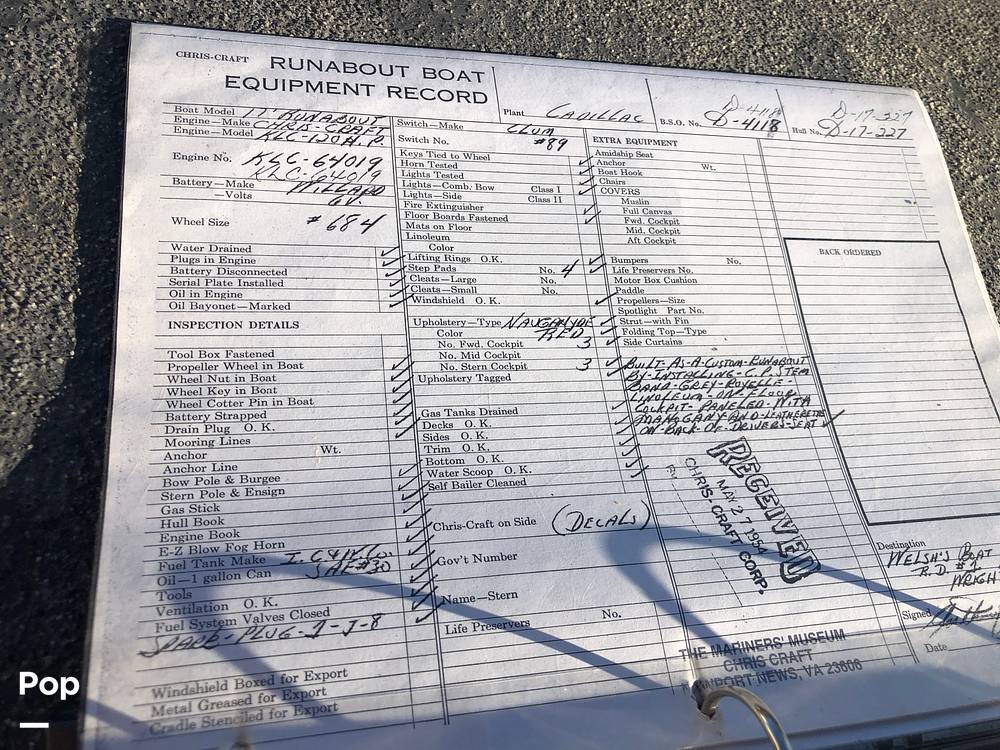 CHRIS-CRAFT RUNABOUT BOAT
EQUIPMENT RECORD
Plant CADILLAC
B.S.O. No. D-4118
D-4118
Hull No. D-17-227
D-17-227
Boat Model 17' RUNABOUT
Engine—Make CHRIS-CRAFT
Engine—Model KLC-120 H.P.
Engine No. KLC-64019
KLC-64019
Battery—Make WILLARD
—Volts 6V.
Wheel Size #684
Water Drained
Plugs in Engine
Battery Disconnected
Serial Plate Installed
Oil in Engine
Oil Bayonet—Marked
INSPECTION DETAILS
Tool Box Fastened
Propeller Wheel in Boat
Wheel Nut in Boat
Wheel Key in Boat
Wheel Cotter Pin in Boat
Battery Strapped
Drain Plug O. K.
Mooring Lines
Anchor Wt.
Anchor Line
Bow Pole & Burgee
Stern Pole & Ensign
Gas Stick
Hull Book
Engine Book
E-Z Blow Fog Horn
Fuel Tank Make
Oil—1 gallon Can SAE#30
Tools
Ventilation O. K.
Fuel System Valves Closed
SPARK-PLUG-1-J-8
Windshield Boxed for Export
Metal Greased for Export
Cradle Stenciled for Export
Switch—Make CLUM
Switch No. #89
Keys Tied to Wheel
Horn Tested
Lights Tested
Lights—Comb. Bow Class I
Lights—Side Class II
Fire Extinguisher
Floor Boards Fastened
Mats on Floor
Linoleum
Color
Lifting Rings O.K.
Step Pads No. 4
Cleats—Large No.
Cleats—Small No.
Windshield O. K.
Upholstery—Type NAUGAHYDE
Color RED
No. Fwd. Cockpit 3
No. Mid Cockpit
No. Stern Cockpit 3
Upholstery Tagged
Gas Tanks Drained
Decks O. K.
Sides O. K.
Trim O. K.
Bottom O. K.
Water Scoop O. K.
Self Bailer Cleaned
Chris-Craft on Side (DECALS)
Gov't Number
Name—Stern
Life Preservers No.
EXTRA EQUIPMENT
Amidship Seat
Anchor Wt.
Boat Hook
Chairs
COVERS
Muslin
Full Canvas
Fwd. Cockpit
Mid. Cockpit
Aft Cockpit
Bumpers No.
Life Preservers No.
Motor Box Cushion
Paddle
Propellers—Size
Spotlight Part No.
Strut—with Fin
Folding Top—Type
Side Curtains
BUILT-AS-A-CUSTOM-RUNABOUT
BY-INSTALLING-C.P. STEM
BAND-GREY-ROYELLE-
LINOLEUM-ON-FLOOR,
COCKPIT-PANELED-WITH
MAHOGANY-AND-LEATHERETTE
ON-BACK-OF-DRIVERS-SEAT
RECEIVED
MAY 27 1954
CHRIS-CRAFT CORP.
BY
THE MARINERS' MUSEUM
CHRIS CRAFT
NEWPORT NEWS, VA 23606
BACK ORDERED
Destination
WELSH'S BOAT
R.D. #1
WRIGH
Signed
Date
Pop